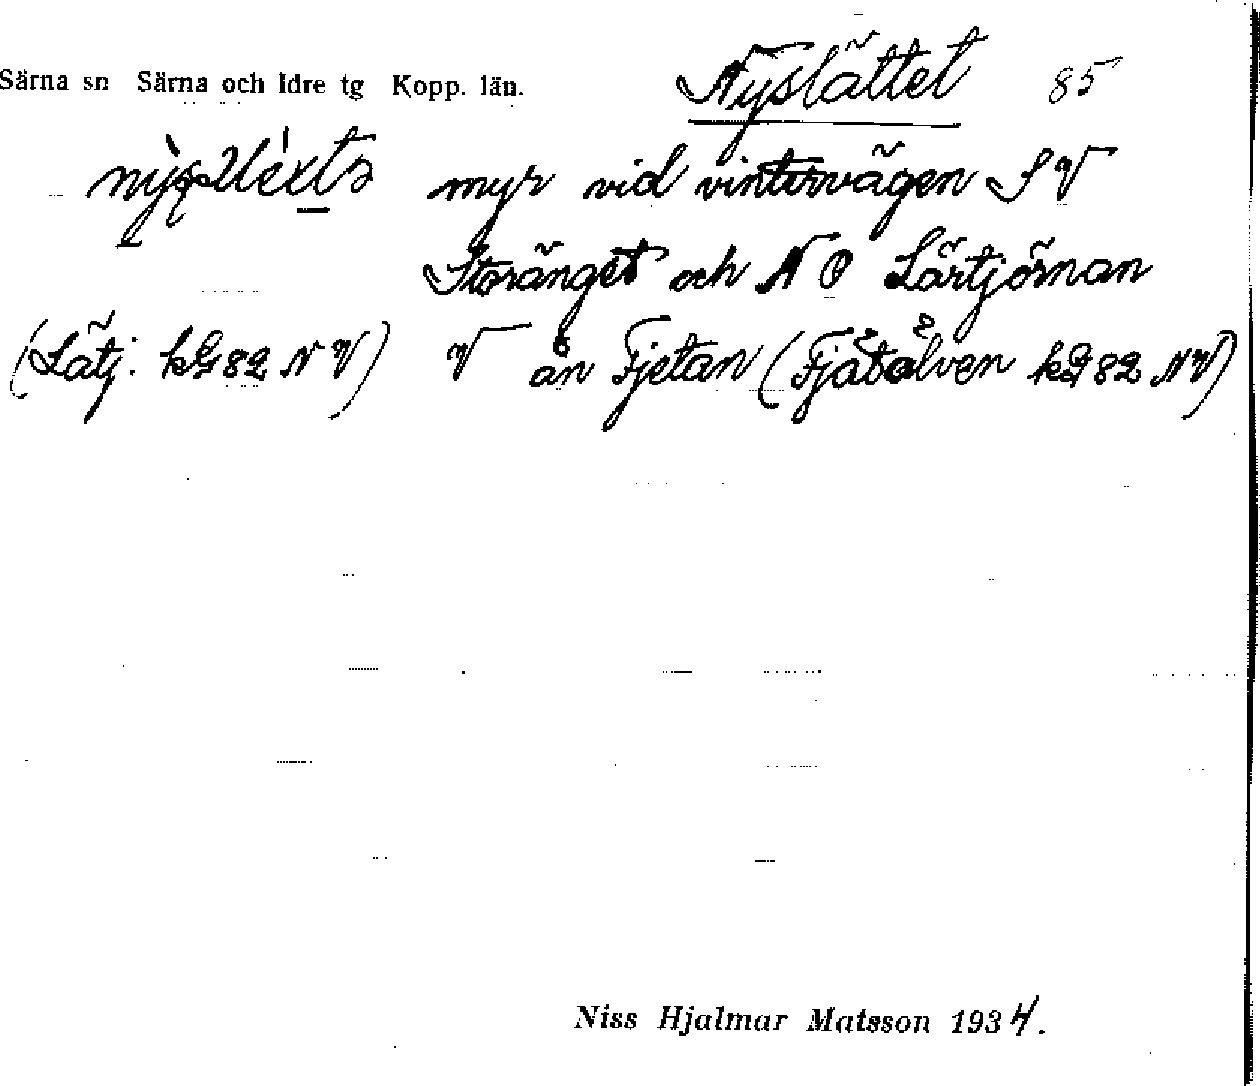 Särna sn Särna och Idre tg Kopp. län. Nyslättet 85
myr vid vintervägen S V
Storänget och N O Lärtjörnan
(Låtj. kG 82 N V) V ån Fjetan (Fjätälven kG 82 N V)
Niss Hjalmar Matsson 1934.